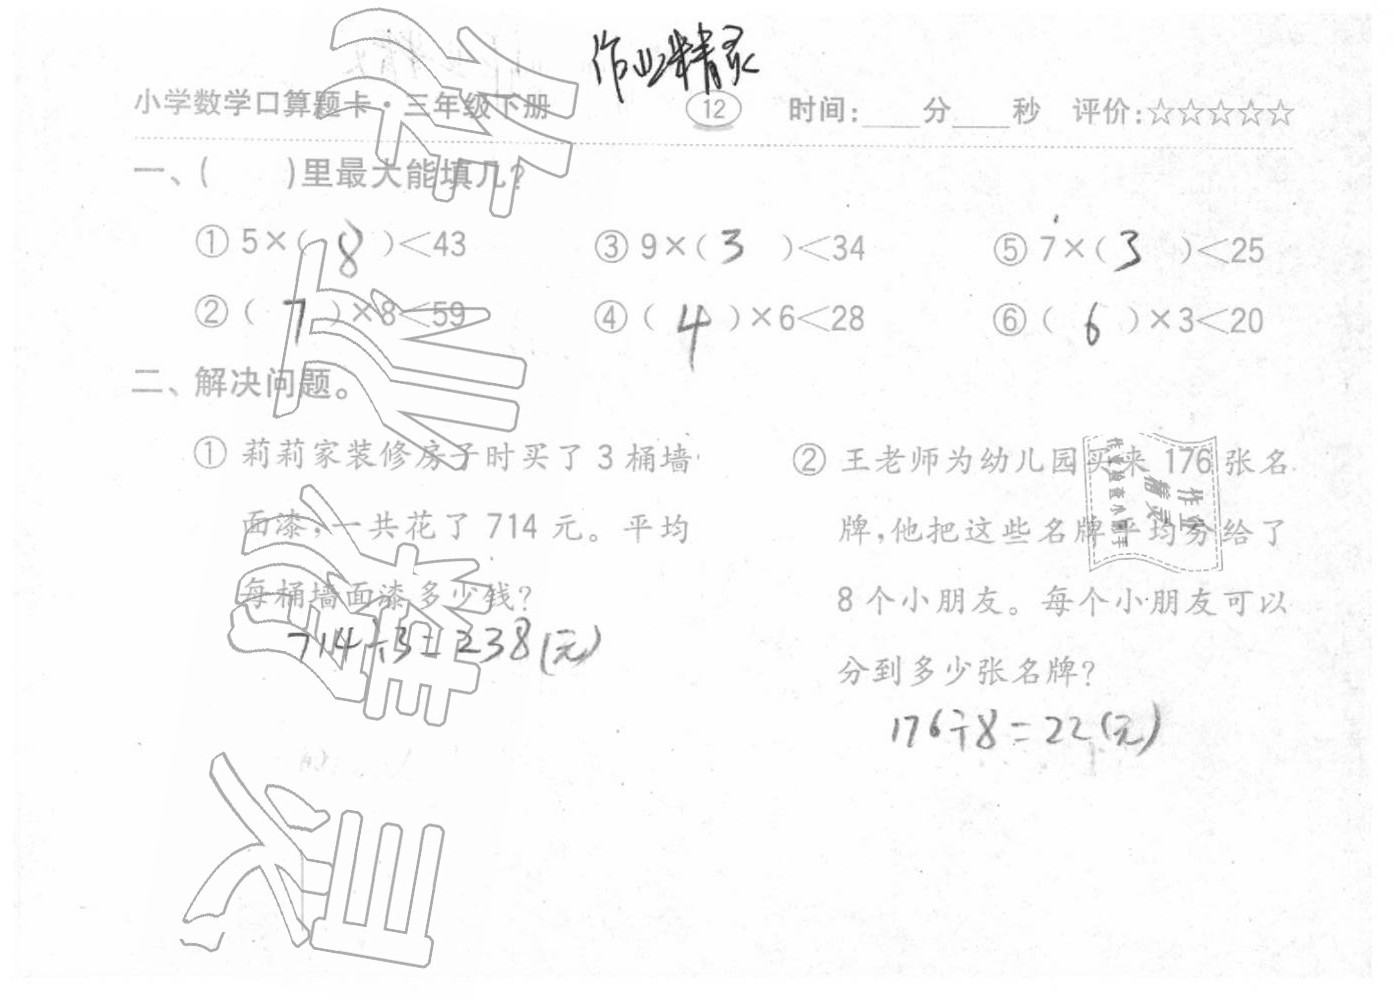 作业精灵
小学数学口算题卡·三年级下册 12 时间:____分____秒 评价:☆☆☆☆☆
一、( )里最大能填几?
① 5×( 8 )<43 ③ 9×( 3 )<34 ⑤ 7×( 3 )<25
② ( 7 )×8<59 ④ ( 4 )×6<28 ⑥ ( 6 )×3<20
二、解决问题。
① 莉莉家装修房子时买了 3 桶墙
面漆,一共花了 714 元。平均
每桶墙面漆多少钱?
714÷3=238(元)
② 王老师为幼儿园买来 176 张名
牌,他把这些名牌平均分给了
8 个小朋友。每个小朋友可以
分到多少张名牌?
176÷8=22(元)
作业精灵
作业检查小助手
作业精灵